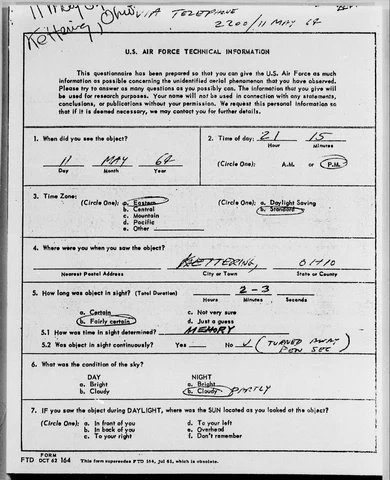 11 May 64
Kettering, Ohio VIA TELEPHONE
2200/11 MAY 64
U.S. AIR FORCE TECHNICAL INFORMATION
This questionnaire has been prepared so that you can give the U.S. Air Force as much
information as possible concerning the unidentified aerial phenomenon that you have observed.
Please try to answer as many questions as you possibly can. The information that you give will
be used for research purposes. Your name will not be used in connection with any statements,
conclusions, or publications without your permission. We request this personal information so
that if it is deemed necessary, we may contact you for further details.
1. When did you see the object?
11 MAY 64
Day Month Year
2. Time of day: 21 15
Hour Minutes
(Circle One): A.M. or P.M.
3. Time Zone:
(Circle One): a. Eastern
b. Central
c. Mountain
d. Pacific
e. Other
(Circle One): a. Daylight Saving
b. Standard
4. Where were you when you saw the object?
KETTERING, OHIO
Nearest Postal Address City or Town State or County
5. How long was object in sight? (Total Duration) 2-3
Hours Minutes Seconds
a. Certain c. Not very sure
b. Fairly certain d. Just a guess
5.1 How was time in sight determined? MEMORY
5.2 Was object in sight continuously? Yes No ✓ (TURNED AWAY
SEC)
6. What was the condition of the sky?
DAY NIGHT
a. Bright a. Bright
b. Cloudy b. Cloudy PARTLY
7. IF you saw the object during DAYLIGHT, where was the SUN located as you looked at the object?
(Circle One): a. In front of you d. To your left
b. In back of you e. Overhead
c. To your right f. Don't remember
FORM
FTD OCT 62 164 This form supersedes FTD 164, Jul 61, which is obsolete.